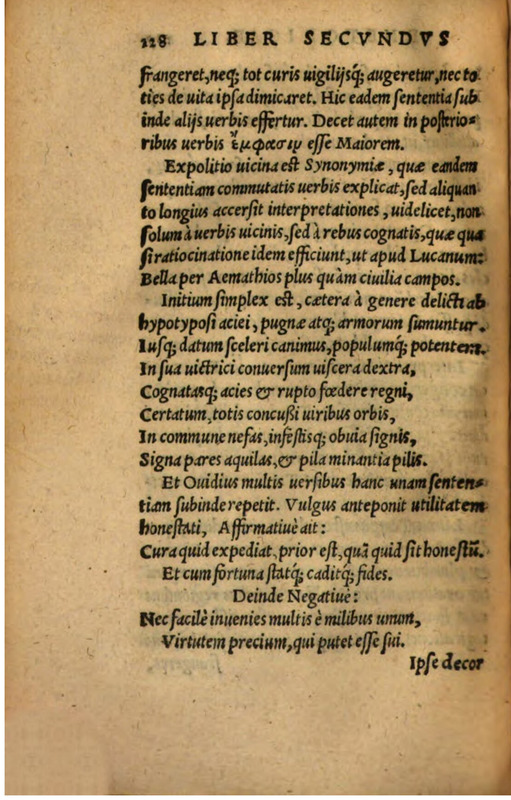 228 LIBER SECVNDVS
frangeret, neq; tot curis uigilijsq́; augeretur, nec to
ties de uita ipsa dimicaret. Hic eadem sententia sub
inde alijs uerbis effertur. Decet autem in postrio-
ribus uerbis ἔμφασιν esse Maiorem.
Expolitio uicina est Synonymiæ, quæ eandem
sententiam commutatis uerbis explicat, sed aliquan
to longius accersit interpretationes, uidelicet, non
solum à uerbis uicinis, sed à rebus cognatis, quæ qua
si ratiocinatione idem efficiunt, ut apud Lucanum:
Bella per Aemathios plus quàm ciuilia campos.
Initium simplex est, cætera à genere delicti ab
hypotyposi aciei, pugnæ atq; armorum sumuntur.
Iusq; datum sceleri canimus, populumq; potentem.
In sua uictrici conuersum uiscera dextra,
Cognatasq; acies & rupto fœdere regni,
Certatum, totis concußi uiribus orbis,
In commune nefas, infestisq; obuia signis,
Signa pares aquilas, & pila minantia pilis.
Et Ouidius multis uersibus hanc unam senten-
tiam subinde repetit. Vulgus anteponit utilitatem
honestati, Affirmatiuè ait:
Cura quid expediat, prior est, quã quid sit honestũ.
Et cum fortuna statq́; caditq́; fides.
Deinde Negatiuè:
Nec facilè inuenies multis è milibus unum,
Virtutem precium, qui putet esse sui.
Ipse decor